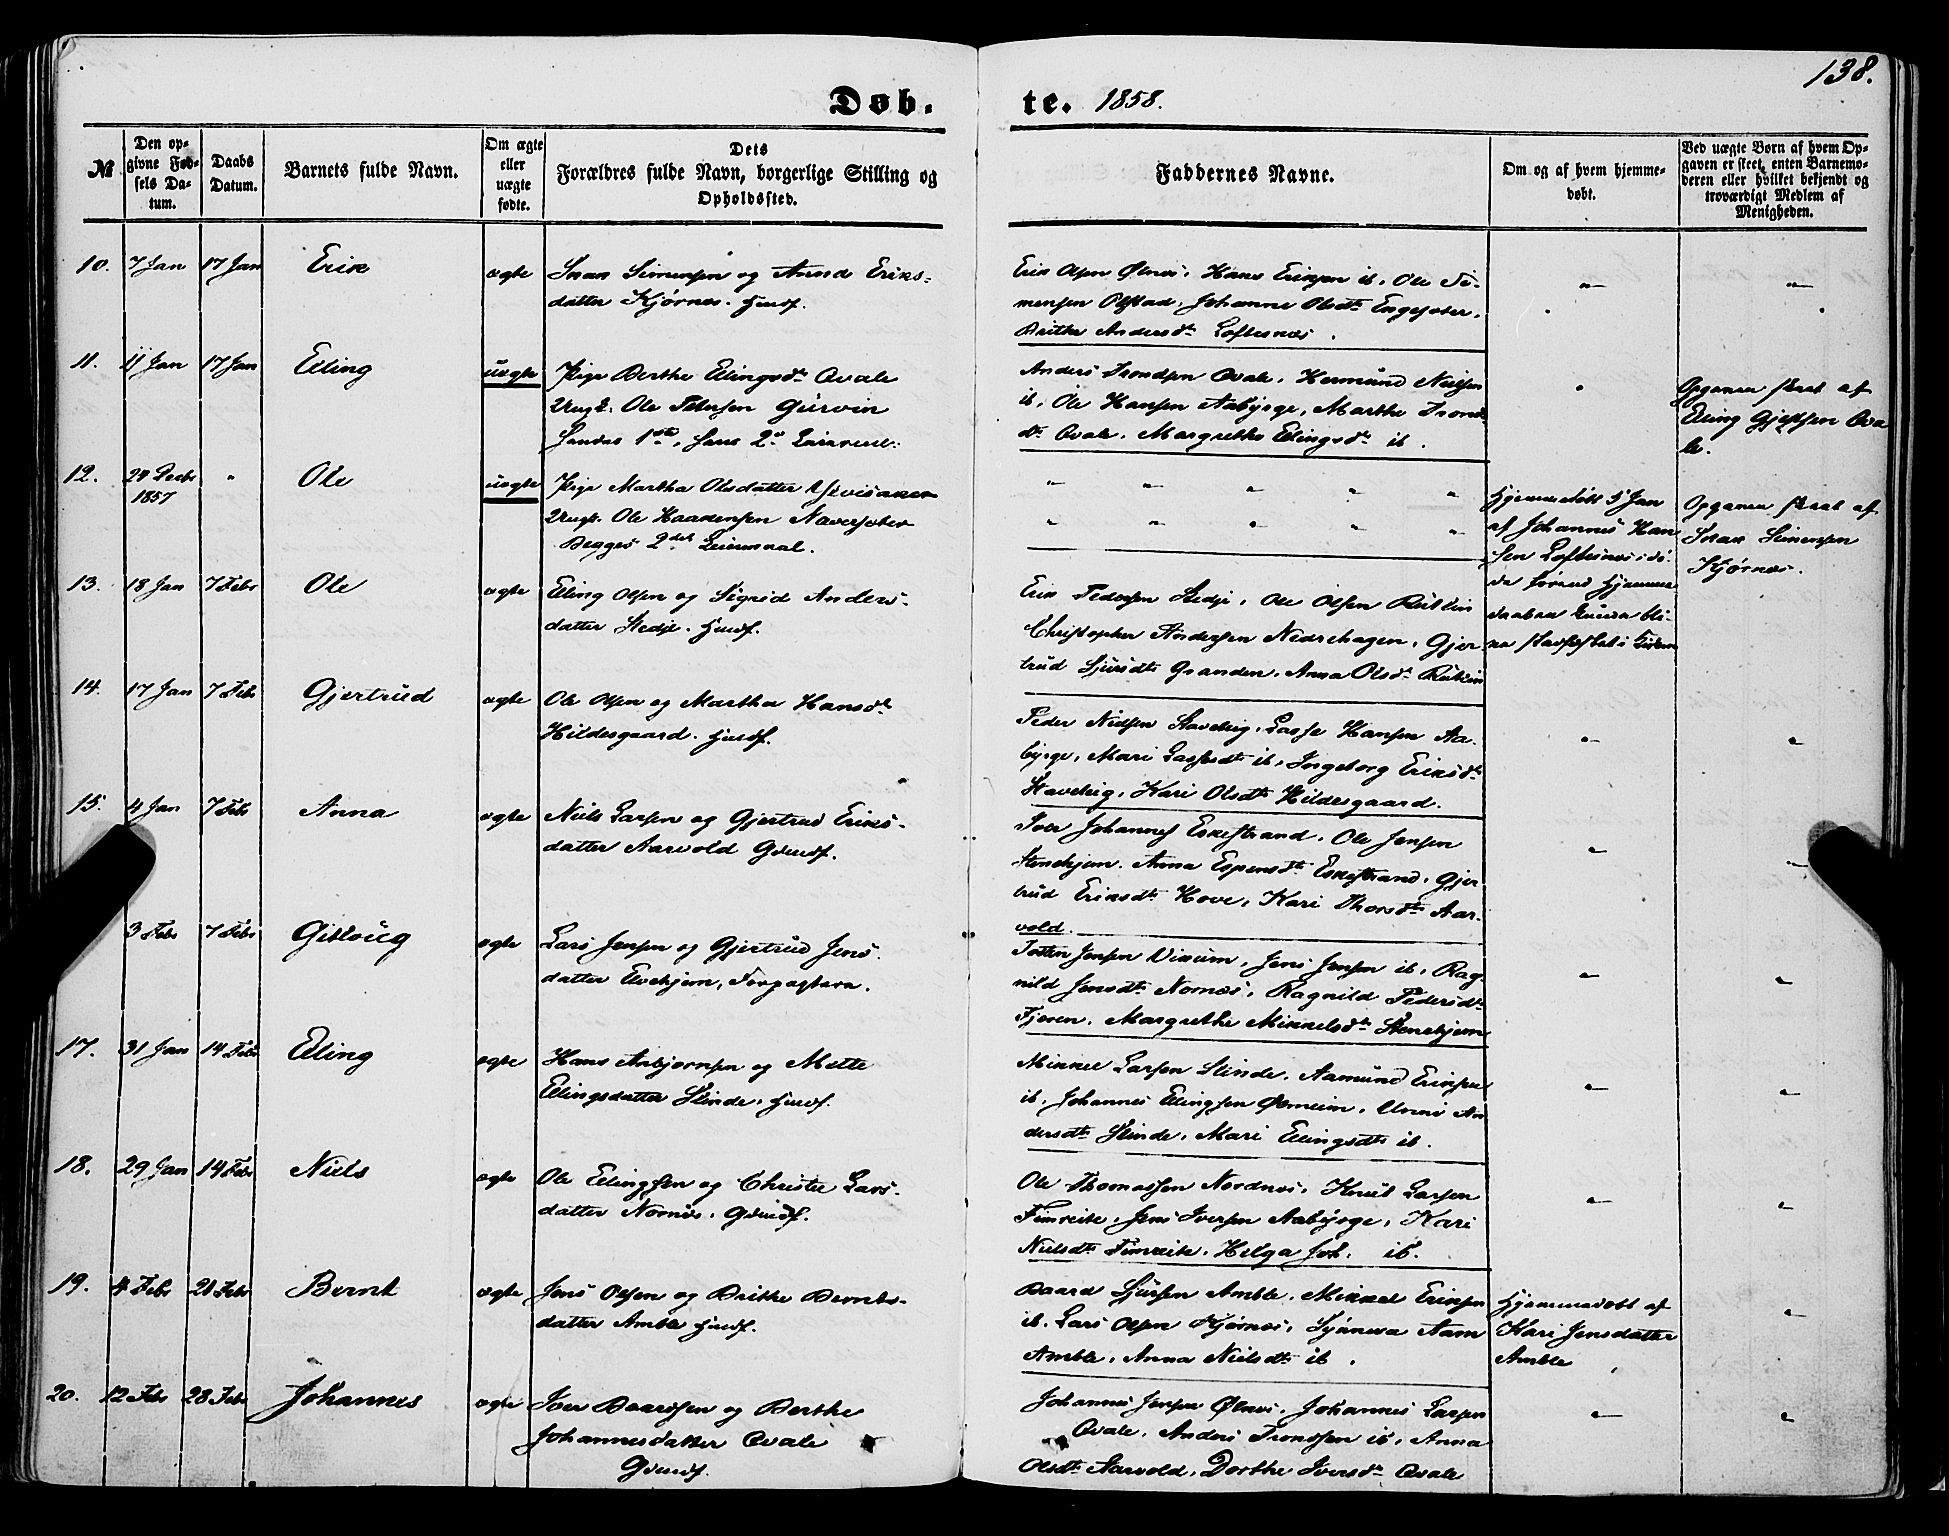 138.
Døb- te. 1858.
№
Den op-
givne Fød-
sels Da-
tum.
Daabs
Datum.
Barnets fulde Navn.
Om ægte
eller
uægte
fødte.
Dets
Forældres fulde Navn, borgerlige Stilling og
Opholdssted.
Faddernes Navne.
Om og af hvem hjemme-
døbt.
Ved uægte Børn af hvem Op-
gaven er skeet, enten Barnemo-
deren eller hvilket bekjendt og
troværdigt Medlem af
Menigheden.
10. 7 Jan 17 Jan Erik ægte
Simensen og Anna Eriks-
datter Kjørnes. Husf.
Erik Olsen Ølnes, Hans Eriksen ib, Ole Si-
mensen Olstad, Johanne Olsdtr Engesæter,
Brithe Andersdtr Loftesnes.
11. 11 Jan 17 Jan Elling uægte
Pige Berthe Ellingsdtr Qvale
Ungk. Ole Petersen Gurvin
Hendes 1ste, hans 2d Leierm.
Anders Trondsen Qvale, Hermund Nielsen
ib, Ole Hansen Aabyrge, Marthe Tronds
dtr Qvale, Margrethe Ellingsdtr ib.
Opgaven skeet af
Elling Qva
le.
12. Decbr
1857 " Ole uægte
Pige Martha Olsdatter
Ungk. Ole Haakensen Navarsæter
Begges 2det Leiermaal.
Hjemmedøbt 5 Jan
af Johannes Han
sen Loftesnes, i
da forend Hjemme
daaben kunne bli-
ve stadfæstet i Kirken
Opgaven skeet af
Simensen
Kjørnes.
13. 18 Jan 7 Febr Ole ægte
Elling Olsen og Sigrid Anders-
datter Stedje. Husf.
Erik Pedersen Stedje, Ole Olsen Rutlin
Christopher Andersen Nedrehagen, Gjer
trud Sjursdtr Granden, Anna Olsdtr Rutlin
14. 17 Jan 7 Febr Gjertrud ægte
Ole Olsen og Martha Hansdtr
Hildesgaard. Husf.
Peder Nielsen Stavehig, Lasse Hansen Aa-
byrge, Mari Lassesdtr ib, Ingeborg Eriksdtr
Stavehig, Kari Olsdtr Hildesgaard.
15. 4 Jan 7 Febr Anna ægte
Niels Larsen og Gjertrud Eriks-
datter Aarvold Gdmdf.
Iver Johannes Eskestrand, Ole Jensen
Stenehjem. Anna Espensdtr Eskestrand, Gjer-
trud Eriksdtr Hove, Kari Thorsdtr Aar-
vold.
3 Febr 7 Febr Gitlaug ægte
Lars Jensen og Gjertrud Jens-
datter Elvehjem, Forpagtere.
Tosten Jensen Vikum, Jens Jensen ib, Rag-
nild Jensdtr Nornes, Ragnild Pedersdtr
Fjæren, Margrethe Mikkelsdtr Stenehjem
17. 31 Jan 14 Febr Elling ægte
Hans Asbjørnsen og Mette
Ellingsdatter Slinde. Husf.
Mikkel Larsen Slinde, Aamund Eriksen
ib, Johannes Ellingsen Ølmeim, Unni An
dersdtr Slinde, Mari Ellingsdtr ib.
18. 29 Jan 14 Febr Niels ægte
Ole Ellingsen og Christie Lars-
datter Nornes. Gdmdf.
Ole Thomassen Nordnes, Knut Larsen
Fimreite, Jens Iversen Aabyrge, Kari
Nielsdtr Fimreite, Helga Joh. ib.
19. 4 Febr 21 Febr Bernt ægte
Jens Olsen og Brithe Bernts-
datter Amble Husf.
Baard Sjursen Amble, Mikkel Eriksen
ib. Lars Olsen Kjørnes, Synneva Aam
Amble, Anna Nielsdtr ib.
Hjemmedøbt af
Kari Jensdatter
Amble
20. 12 Febr 28 Febr Johannes ægte
Iver Baardsen og Berthe
Johannesdatter Qvale
Gdmdf.
Johannes Jensen Ølnes, Johannes Larsen
Qvale, Anders Trondsen ib, Anna
Olsdtr Aarvold, Dorthe Iversdtr Qvale